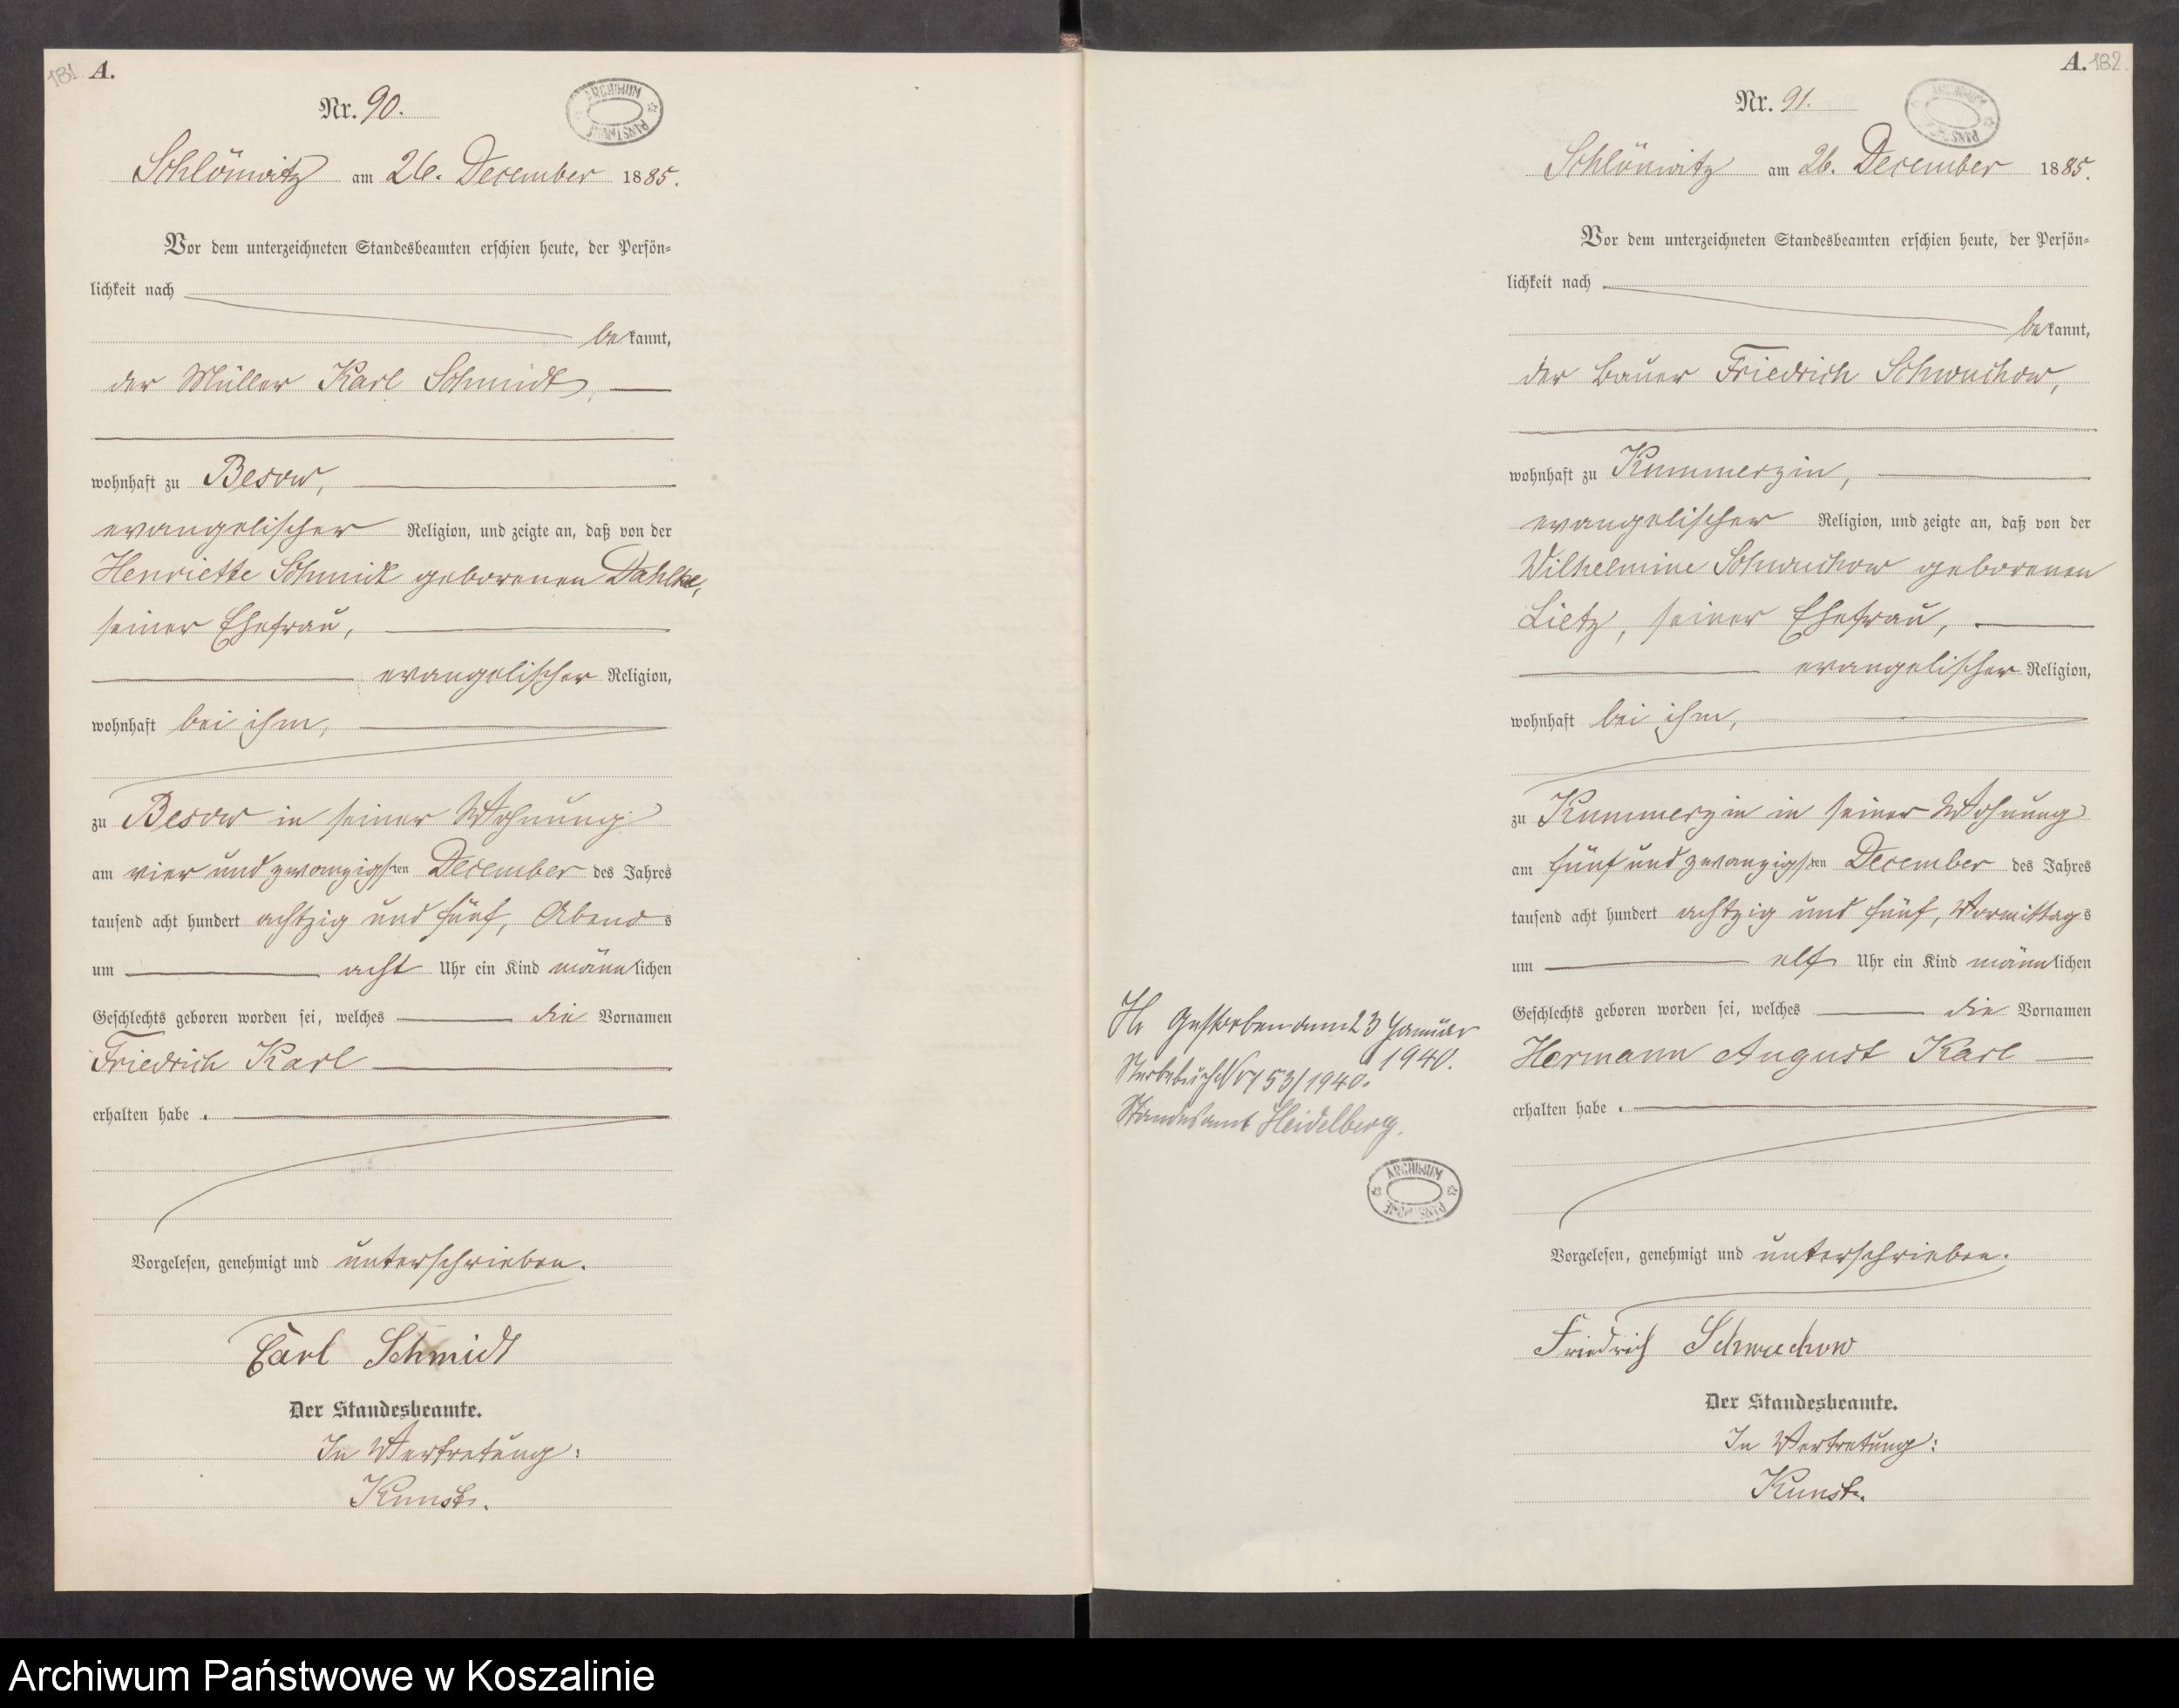 181 A.
Nr. 90.
ARCHIWUM PAŃSTWOWE
Schlönwitz am 26. December 1885.
Vor dem unterzeichneten Standesbeamten erschien heute, der Persön-
lichkeit nach
bekannt,
der Müller Karl Schmidt,
wohnhaft zu Besow,
evangelischer Religion, und zeigte an, daß von der
Henriette Schmidt geborenen Dahlke,
seiner Ehefrau,
evangelischer Religion,
wohnhaft bei ihm,
zu Besow in seiner Wohnung
am vier und zwanzigsten December des Jahres
tausend acht hundert achtzig und fünf, Abends
um acht Uhr ein Kind männlichen
Geschlechts geboren worden sei, welches die Vornamen
Friedrich Karl
erhalten habe.
Vorgelesen, genehmigt und unterschrieben.
Carl Schmidt
Der Standesbeamte.
In Vertretung:
Kunst.
A. 182
Nr. 91.
ARCHIWUM PAŃSTWOWE
Schlönwitz am 26. December 1885.
Vor dem unterzeichneten Standesbeamten erschien heute, der Persön-
lichkeit nach
bekannt,
der Bauer Friedrich Schwuchow,
wohnhaft zu Kummerzin,
evangelischer Religion, und zeigte an, daß von der
Wilhelmine Schwuchow geborenen
Lietz, seiner Ehefrau,
evangelischer Religion,
wohnhaft bei ihm,
zu Kummerzin in seiner Wohnung
am fünf und zwanzigsten December des Jahres
tausend acht hundert achtzig und fünf, Vormittags
um elf Uhr ein Kind männlichen
Geschlechts geboren worden sei, welches die Vornamen
Hermann August Karl
erhalten habe.
Vorgelesen, genehmigt und unterschrieben.
Friedrich Schwuchow
Der Standesbeamte.
In Vertretung:
Kunst.
Gestorben am 23 Januar
1940.
Sterbebuch Nr 53/1940.
Standesamt Heidelberg.
ARCHIWUM PAŃSTWOWE
Archiwum Państwowe w Koszalinie